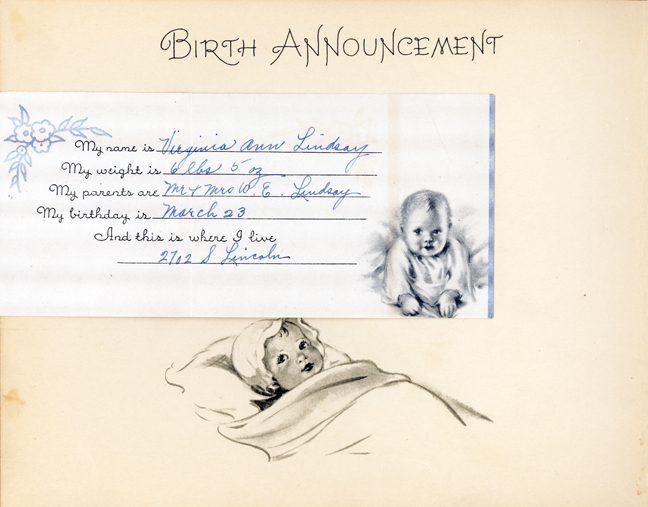 BIRTH ANNOUNCEMENT
My name is Virginia Ann Lindsay
My weight is 6 lbs 5 oz
My parents are Mr & Mrs W. E. Lindsay
My birthday is March 23
And this is where I live
2702 S Lincoln